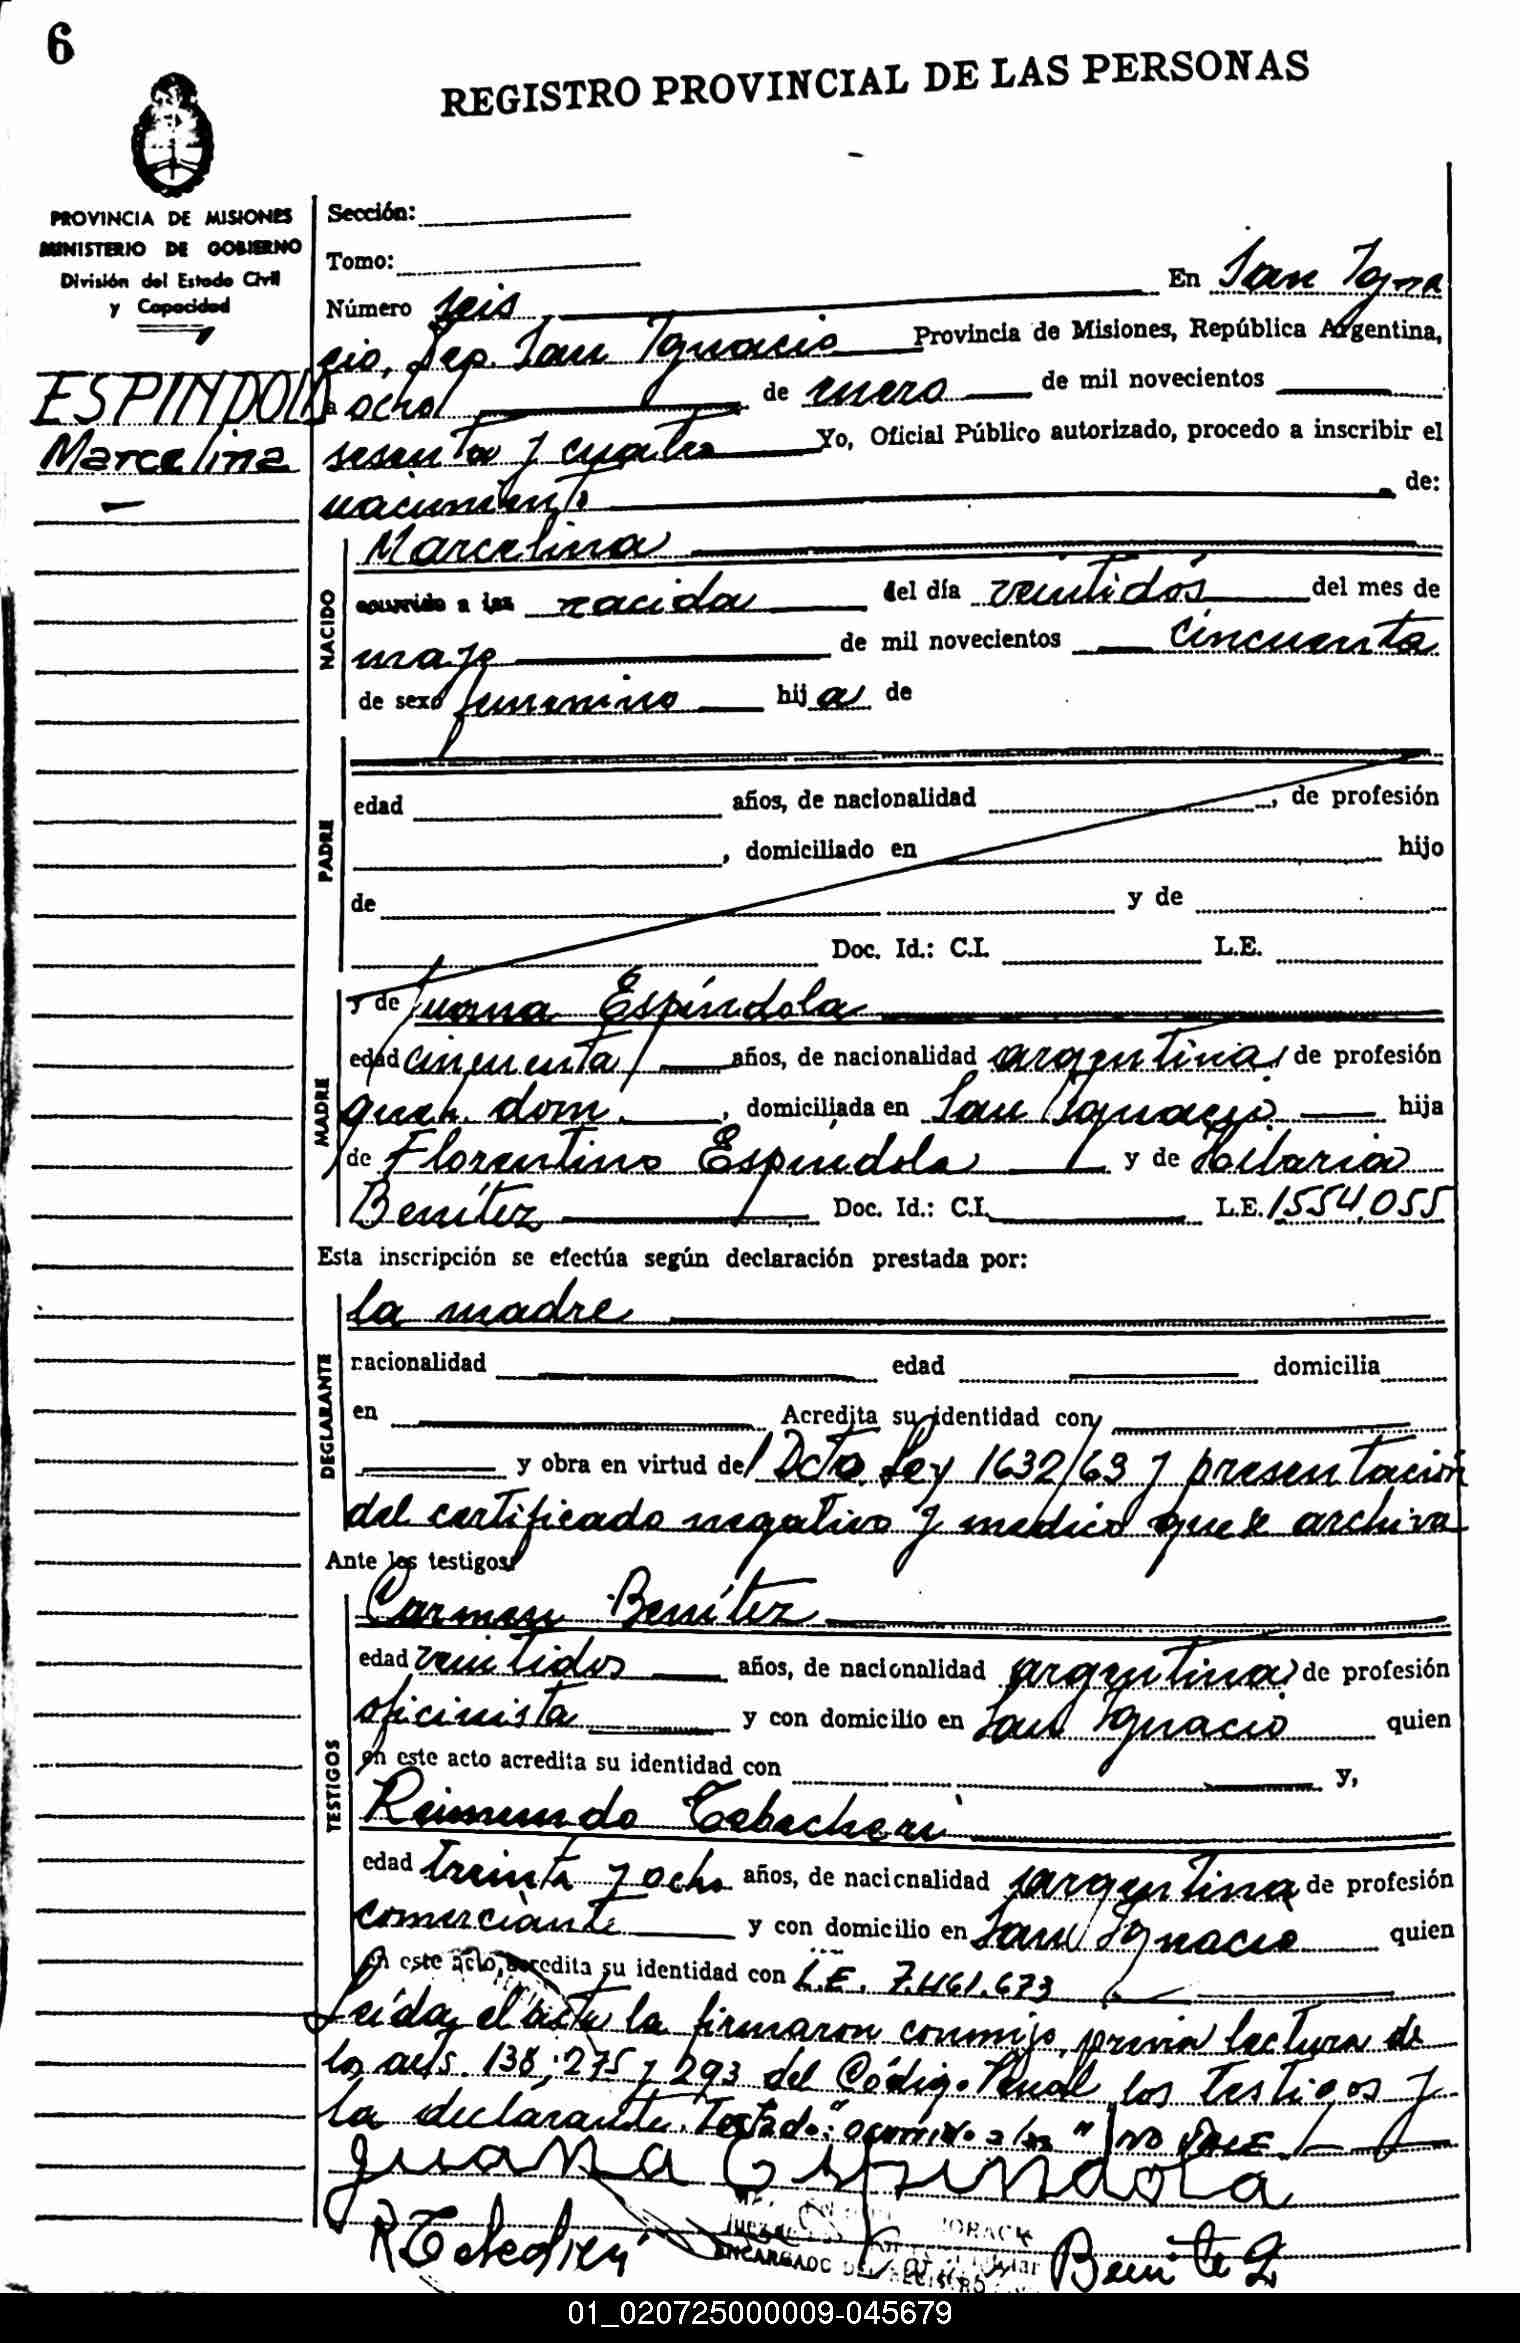 6
REGISTRO PROVINCIAL DE LAS PERSONAS
PROVINCIA DE MISIONES
MINISTERIO DE GOBIERNO
División del Estado Civil
y Capacidad
ESPINDOLA
Marcelina
Sección:
Tomo:
Número seis En San Igna
cio, Dep. San Ignacio Provincia de Misiones, República Argentina,
a ocho de enero de mil novecientos
sesenta y cuatro Yo, Oficial Público autorizado, procedo a inscribir el
nacimiento de:
NACIDO
Marcelina
ocurrido a las nacida del día veintidós del mes de
mayo de mil novecientos cincuenta
de sexo femenino hija de
PADRE
edad años, de nacionalidad , de profesión
, domiciliado en hijo
de y de
Doc. Id.: C.I. L.E.
MADRE
y de Juana Espíndola
edad cincuenta años, de nacionalidad argentina de profesión
queh. dom. , domiciliada en San Ignacio hija
de Florentino Espíndola y de Hilaria
Benítez Doc. Id.: C.I. L.E. 1554.055
Esta inscripción se efectúa según declaración prestada por:
DECLARANTE
la madre
nacionalidad edad domicilia
en Acredita su identidad con
y obra en virtud del Dcto. Ley 1632/63 y presentación
del certificado negativo y medico que se archiva
Ante los testigos:
TESTIGOS
Carmen Benítez
edad veintidos años, de nacionalidad argentina de profesión
oficinista y con domicilio en San Ignacio quien
en este acto acredita su identidad con y,
Reimundo
edad treinta y ocho años, de nacionalidad argentina de profesión
comerciante y con domicilio en San Ignacio quien
en este acto acredita su identidad con L.E. 7.461.673
Leída el acta la firmaron conmigo, previa lectura de
los arts. 138, 275 y 293 del Código Penal los testigos y
la declarante. Testado: "ocurrido a las" NO VALE
Juana Espindola
ENCARGADO DEL REGISTRO
Benitez
01_020725000009-045679